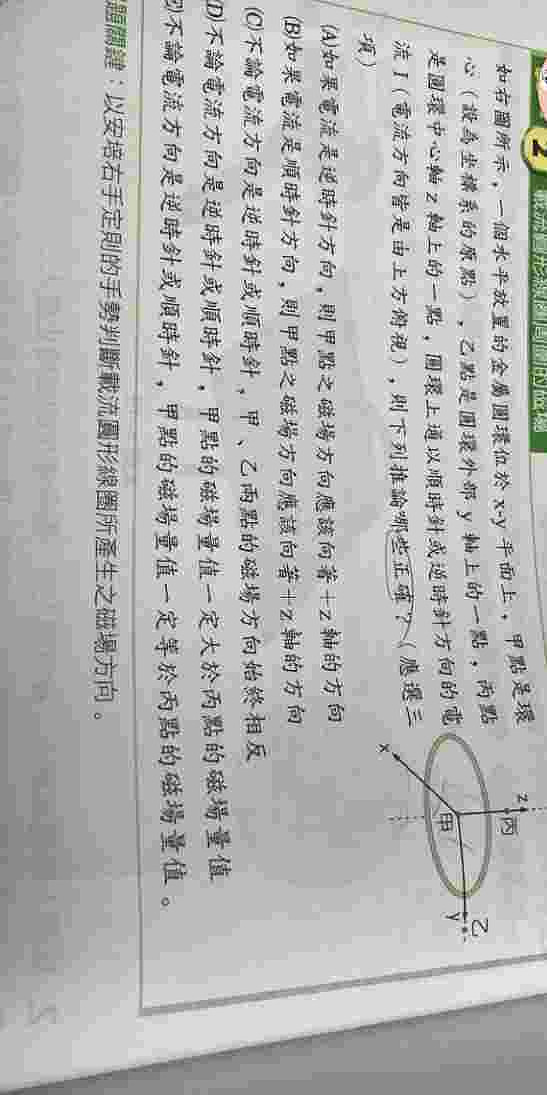 2 載流圓形線圈周圍的磁場
如右圖所示，一個水平放置的金屬圓環位於 x-y 平面上，甲點是環
心（設為坐標系的原點），乙點是圓環外部 y 軸上的一點，丙點
是圓環中心軸 z 軸上的一點，圓環上通以順時針或逆時針方向的電
流 I（電流方向皆是由上方俯視），則下列推論哪些正確？（應選三
項）
(A)如果電流是逆時針方向，則甲點之磁場方向應該向著＋z 軸的方向
(B)如果電流是順時針方向，則甲點之磁場方向應該向著＋z 軸的方向
(C)不論電流方向是逆時針或順時針，甲、乙兩點的磁場方向始終相反
(D)不論電流方向是逆時針或順時針，甲點的磁場量值一定大於丙點的磁場量值
不論電流方向是逆時針或順時針，甲點的磁場量值一定等於丙點的磁場量值。
題關鍵：以安培右手定則的手勢判斷載流圓形線圈所產生之磁場方向。
z
丙
甲
乙
y
x